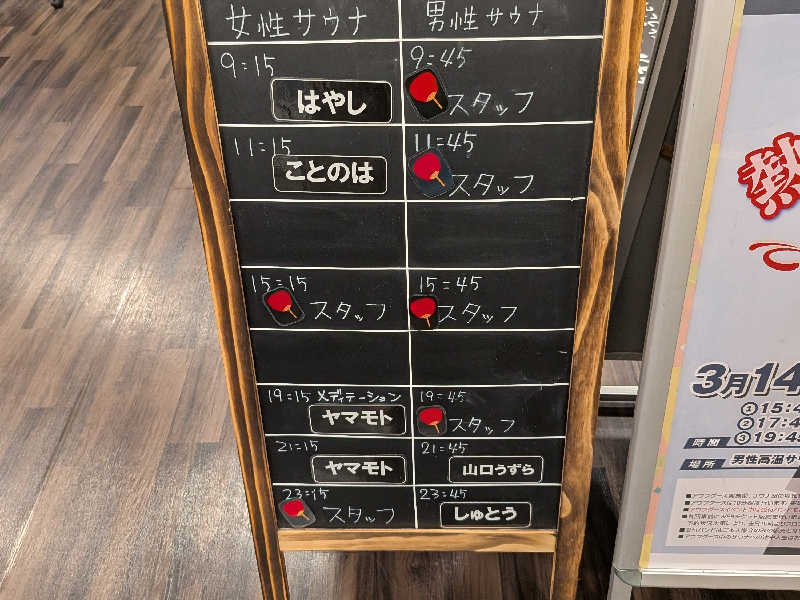 女性サウナ 男性サウナ
9:15 9:45
はやし スタッフ
11:15 11:45
ことのは スタッフ
15:15 15:45
スタッフ スタッフ
19:15 メディテーション 19:45
ヤマモト スタッフ
21:15 21:45
ヤマモト 山口うずら
23:15 23:45
スタッフ しゅとう
熱
3月14
① 15:4
② 17:4
時間 ③ 19:4
場所 男性高温サ